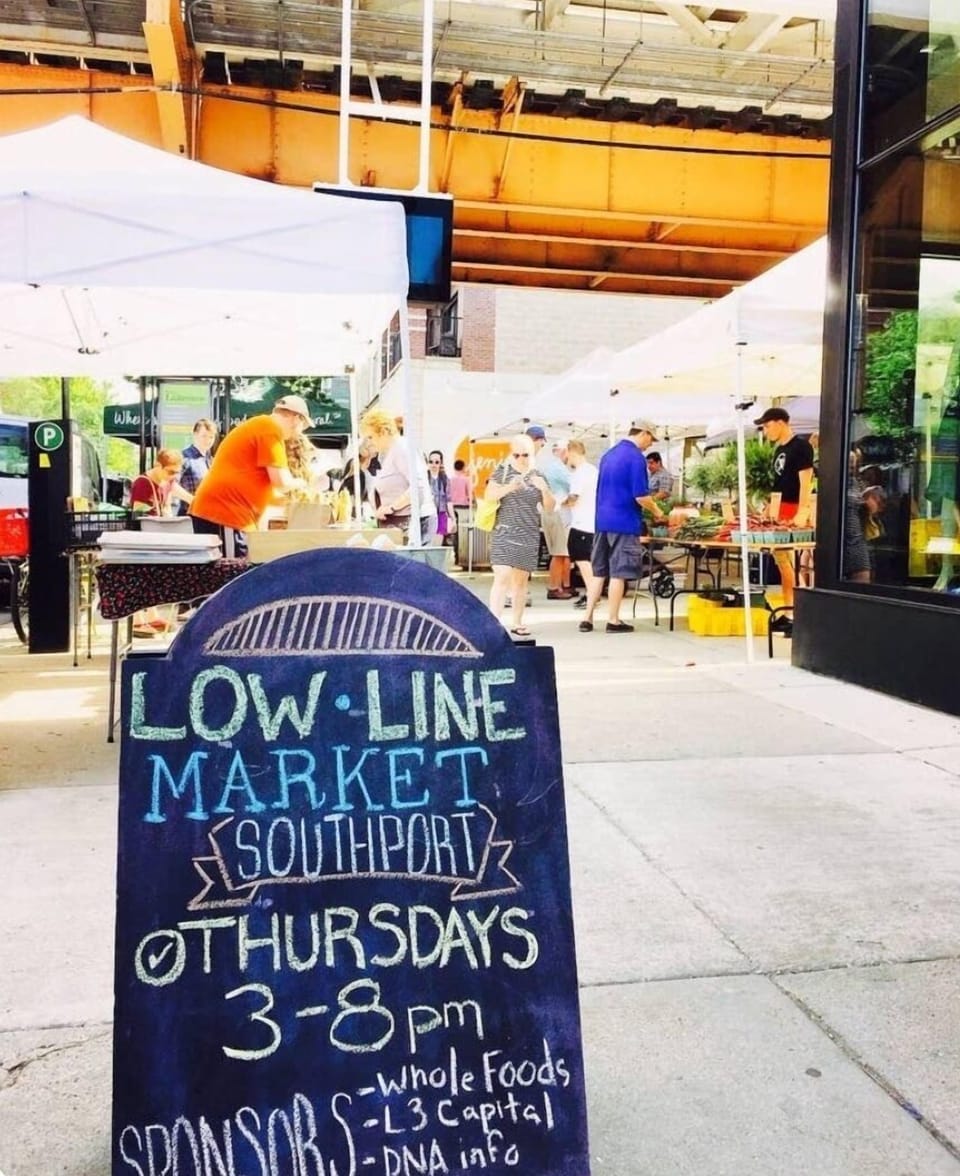 P
jeni's
LOW • LINE
MARKET
SOUTHPORT
THURSDAYS
3-8pm
SPONSORS
-Whole Foods
-L3 Capital
-DNA info